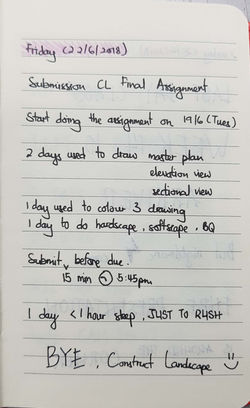 Friday (22/6/2018)
Submission CL Final Assignment
Start doing the assignment on 19/6 (Tues)
2 days used to draw master plan
elevation view
sectional view
1 day used to colour 3 drawing
1 day to do hardscape, softscape, BQ
Submit before due.
15 min 5:45pm
1 day <1 hour sleep, JUST TO RUSH
BYE, Construct Landscape